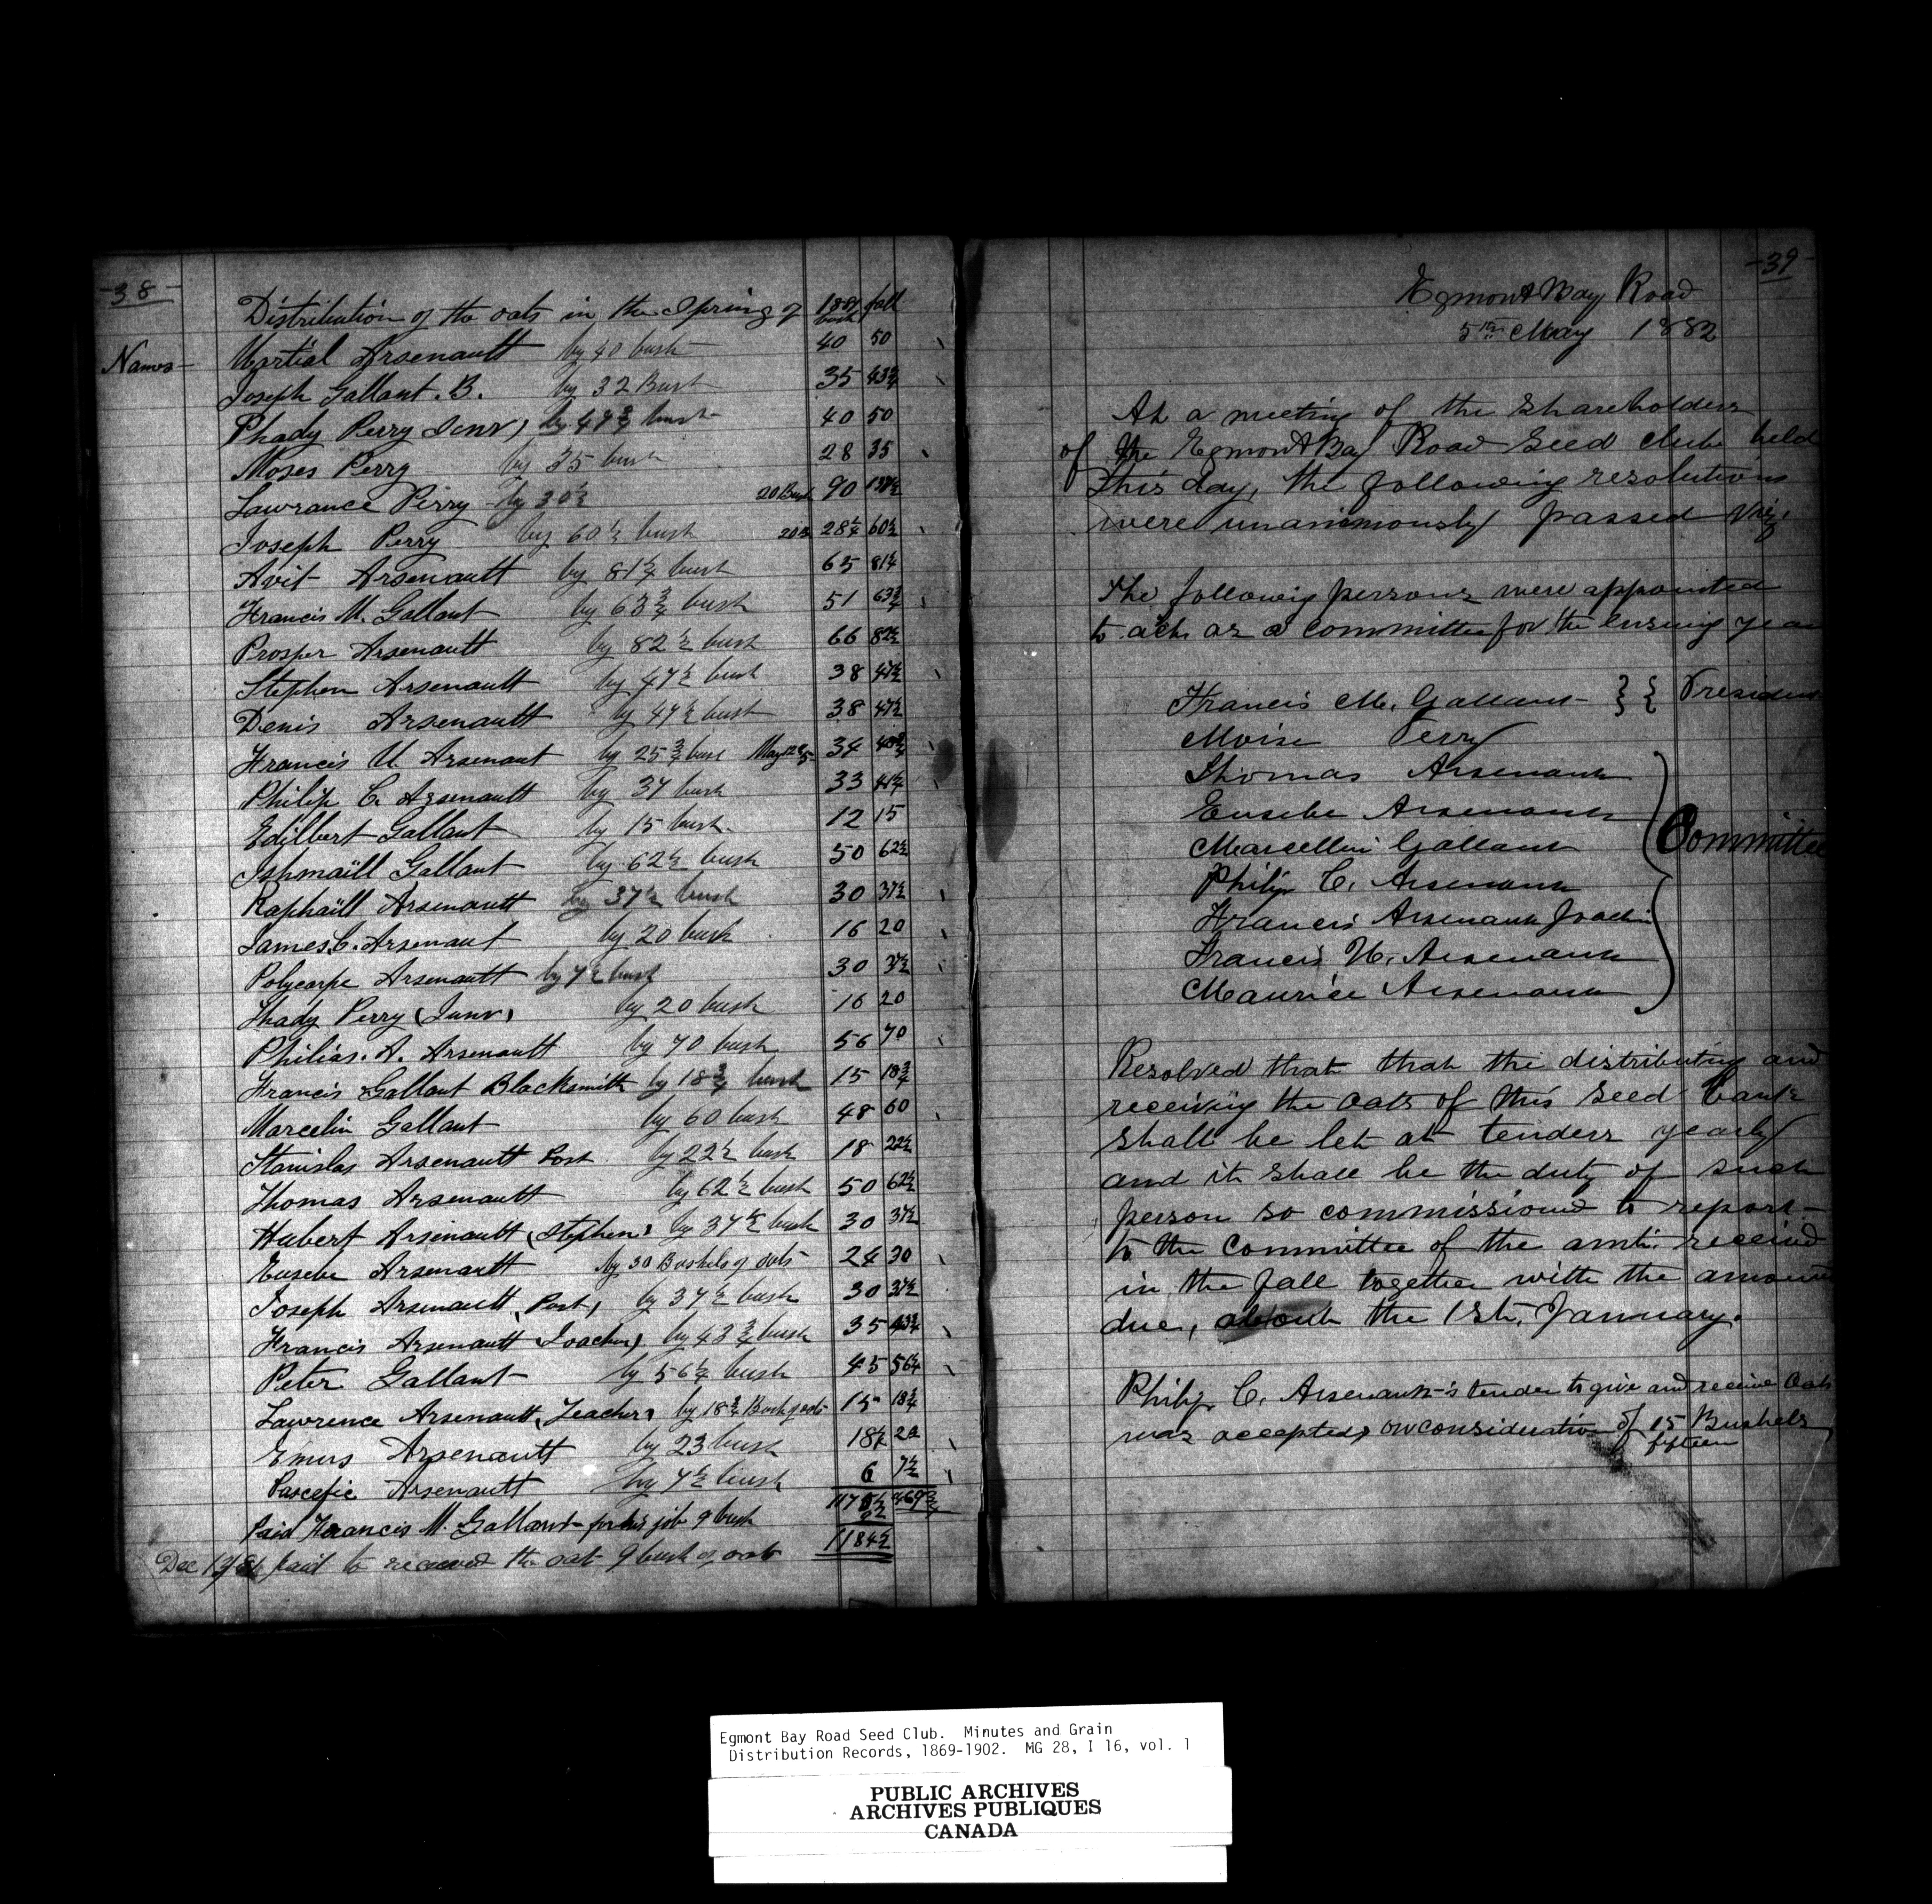 -38-
Distribution of the oats in the Spring of 1881 fall
bush
Names- Martial Arsenault by 40 bush 40 50
Joseph Gallant. B. by 32 Bush 35 43 3/4
Phady Perry Senr, by 47 3/4 bush 40 50
Moses Perry by 35 bush 28 35
Lawrance Perry - by 30 1/2 20 Bush 90
Joseph Perry by 60 1/2 bush 28 1/4 60 1/2
Avit Arsenault by 81 1/4 bush 65 81 1/4
Francis M. Gallant by 63 3/4 bush 51 63 3/4
Prosper Arsenault by 82 1/2 bush 66 82 1/2
Stephen Arsenault by 47 1/2 bush 38 47 1/2
Denis Arsenault by 47 1/2 bush 38 47 1/2
Francis U Arsenaut by 25 3/4 bush 34
Philip C. Arsenault by 37 bush 33 41 1/4
Edilbert Gallant by 15 bush. 12 15
Ishmaill Gallant by 62 1/2 bush 50 62 1/2
Raphaïll Arsenault by 37 1/2 bush 30 37 1/2
James C. Arsenaut by 20 bush 16 20
Polycarpe Arsenault by 7 1/2 bush 30 37 1/2
Thady Perry (Junr) by 20 bush 16 20
Philias. A. Arsenault by 70 bush 56 70
Francis Gallant Blacksmith by 18 3/4 bush 15 18 3/4
Marcelin Gallant by 60 bush 48 60
Stanislas Arsenault Post by 22 1/2 bush 18 22 1/2
Thomas Arsenault by 62 1/2 bush 50 62 1/2
Hubert Arsenault (Stephen) by 37 1/2 bush 30 37 1/2
Eusebe Arsenault by 30 Bushels of oats 24 30
Joseph Arsenault (Post) by 37 1/2 bush 30 37 1/2
Francis Arsenault (Joachim) by 43 3/4 bush 35 43 3/4
Peter Gallant by 56 1/4 bush 45 56 1/4
Lawrence Arsenault (Teacher) by 18 3/4 Bush of oats 15 18 3/4
Emus Arsenault by 23 bush 18 1/2 23
Pascefie Arsenault by 7 1/2 bush 6 7 1/2
Paid Francis M. Gallant for his job 9 bush
1184 1/2
Dec paid to received the oat 9 bush of oats
-39-
Egmont Bay Road
5th May 1882
At a meeting of the Shareholders
of the Egmont Bay Road Seed Club held
this day, the following resolutions
were unanimously passed Viz,
The followig persons were appointed
to act as a committee for the ensuing year
Francis M. Gallant - }{ President
Moise Perry
Thomas Arsenault
Eusebe Arsenault
Marcellin Gallant
Philip C. Arsenault
Committee
Francis Arsenault Joachi
Francis U. Arsenault
Maurice Arsenault
Resolved that that the distributing and
receiving the oats of this Seed bank
shall be let at tenders yearly
and it shall be the duty of such
person so commissioned to report
to the Committee of the amt. received
in the fall together with the amount
due, about the 1st. January.
Philip C. Arsenault's tender to give and receive oats
was accepted, on consideration of 15 Bushels
fifteen
Egmont Bay Road Seed Club. Minutes and Grain
Distribution Records, 1869-1902. MG 28, I 16, vol. 1
PUBLIC ARCHIVES
ARCHIVES PUBLIQUES
CANADA